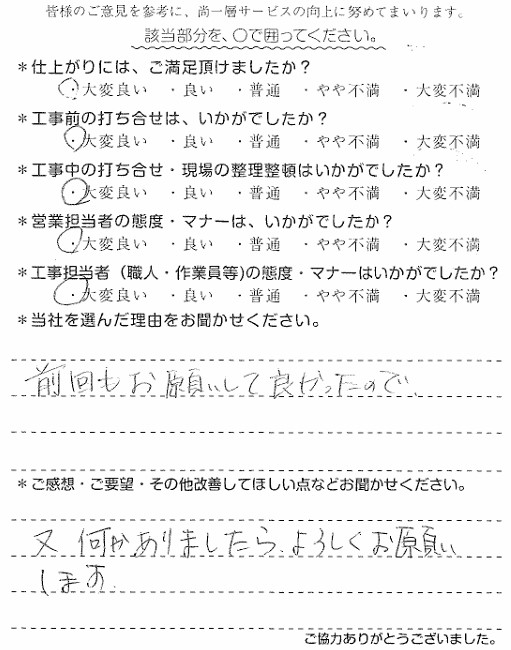 皆様のご意見を参考に、尚一層サービスの向上に努めてまいります。
該当部分を、○で囲ってください。
＊仕上がりには、ご満足頂けましたか？
・大変良い ・良い ・普通 ・やや不満 ・大変不満
＊工事前の打ち合せは、いかがでしたか？
・大変良い ・良い ・普通 ・やや不満 ・大変不満
＊工事中の打ち合せ・現場の整理整頓はいかがでしたか？
・大変良い ・良い ・普通 ・やや不満 ・大変不満
＊営業担当者の態度・マナーは、いかがでしたか？
・大変良い ・良い ・普通 ・やや不満 ・大変不満
＊工事担当者（職人・作業員等)の態度・マナーはいかがでしたか？
・大変良い ・良い ・普通 ・やや不満 ・大変不満
＊当社を選んだ理由をお聞かせください。
前回もお願いして良かったので、
＊ご感想・ご要望・その他改善してほしい点などお聞かせください。
又 何かありましたら、よろしくお願い
します。
ご協力ありがとうございました。